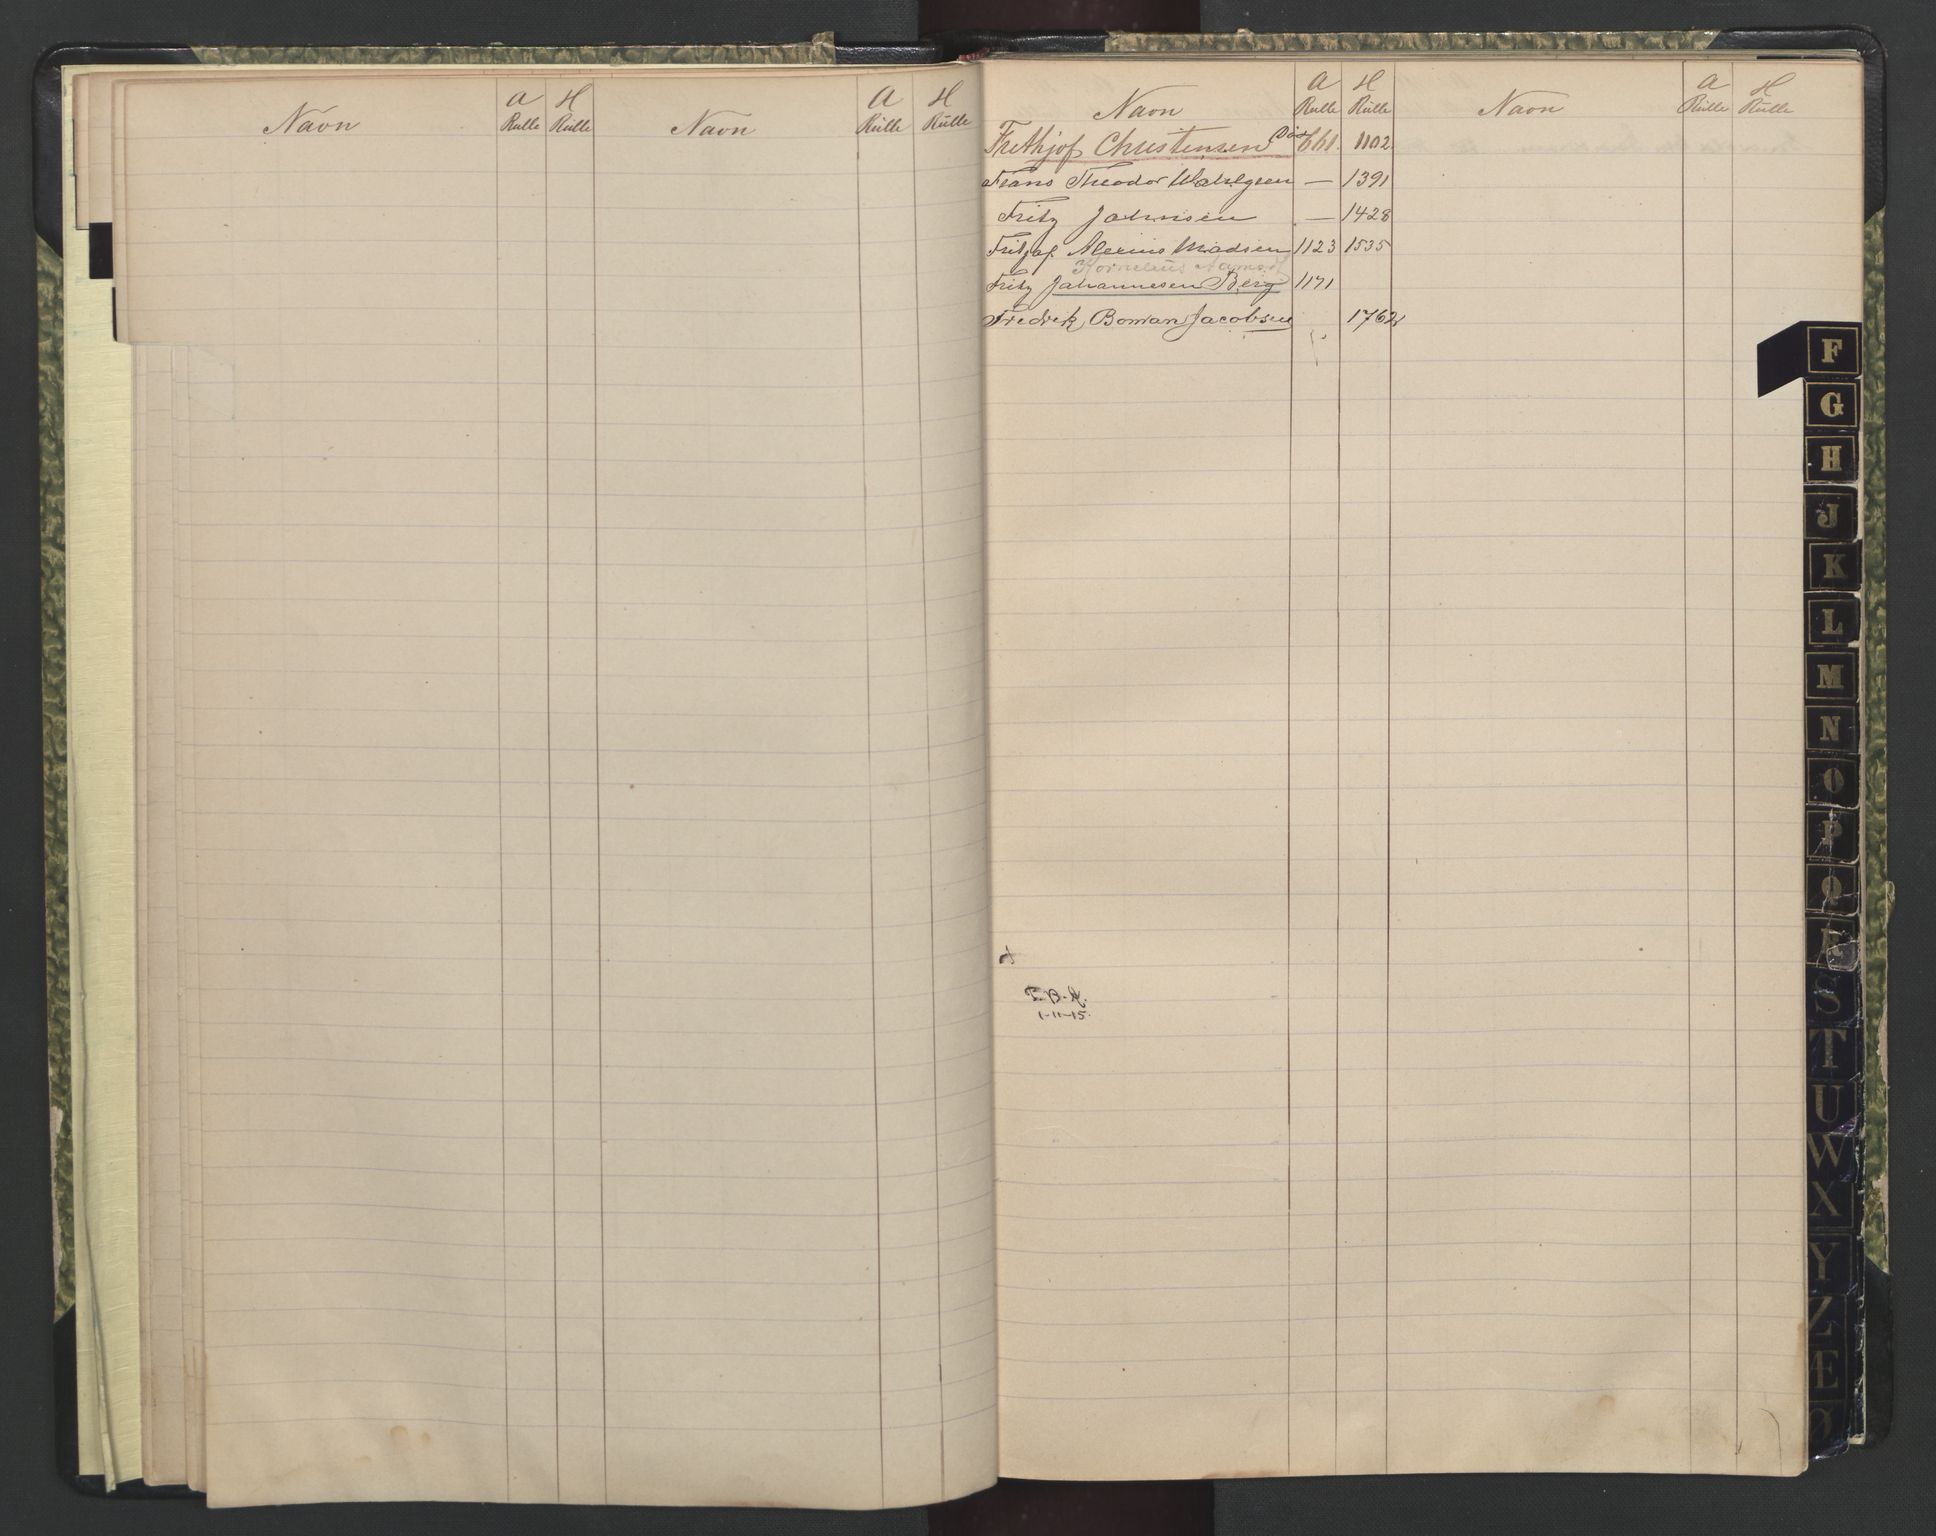 Navn A Rulle H Rulle Navn A Rulle H Rulle
Navn A Rulle H Rulle Navn A Rulle H Rulle
Frethjof Christensen Død 661. 1102.
Frans Theodor Wahlgren — 1391
Fritz Johnsen — 1428
Fritjof Alexius Madsen 1123 1535
Kornelius
Fritz Johannesen Berg 1171
Fredrik Boman Jacobsen 1762
1-11-15.
F
G
H
J
K
L
M
N
O
P
Q
R
S
T
U
W
X
Y
Z
Æ
Ø